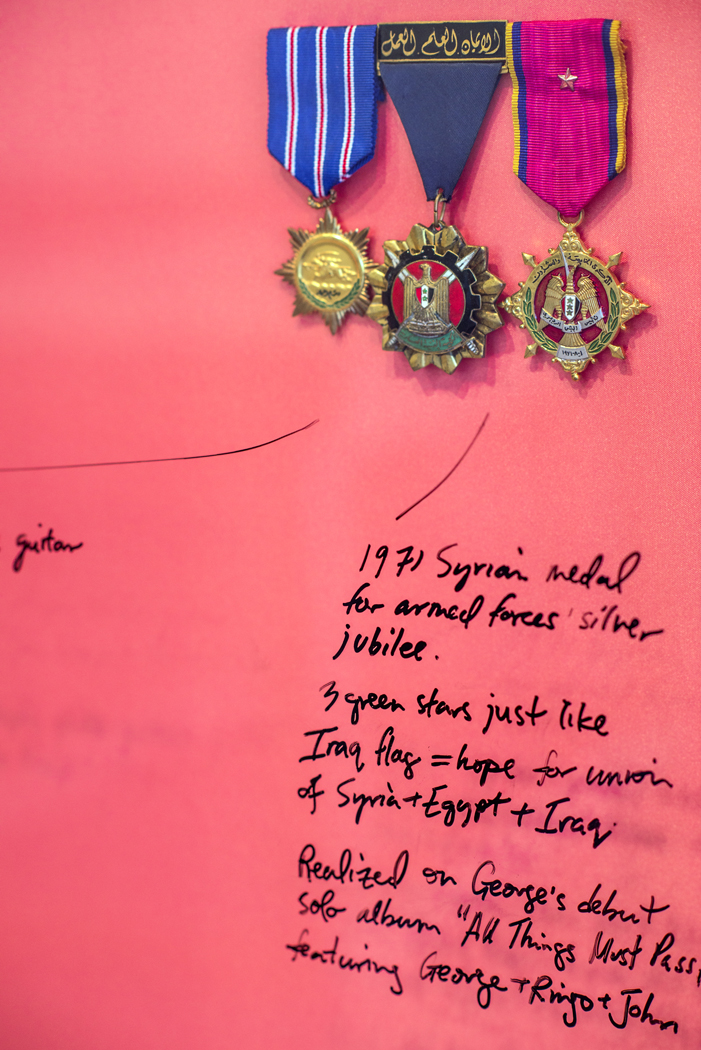 الايمان العلم العمل
guitar
1971 Syrian medal
for armed forces silver
jubilee.
3 green stars just like
Iraq flag = hope for union
of Syria + Egypt + Iraq.
Realized on George's debut
solo album "All Things Must Pass,
featuring George + Ringo + John